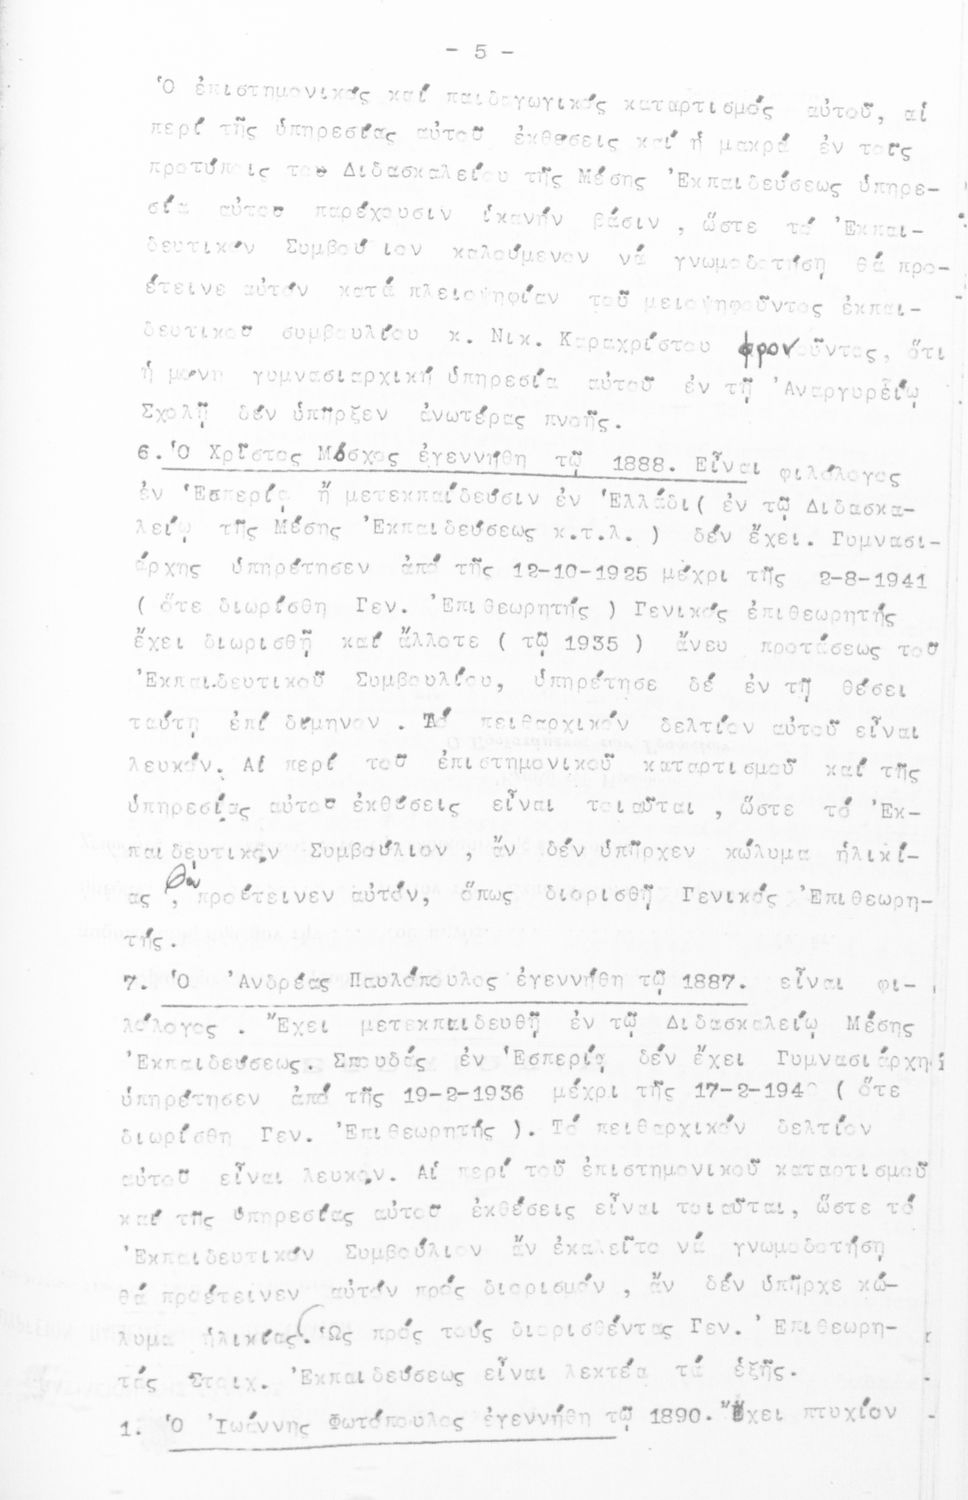 - 5 -
Ὁ ἐπιστημονικός καί παιδαγωγικός καταρτισμός αὐτοῦ, αἱ
περί τῆς ὑπηρεσίας αὐτοῦ ἐκθέσεις καί ἡ μακρά ἐν τοῖς
προτύποις του Διδασκαλείου τῆς Μέσης Ἐκπαιδεύσεως ὑπηρε-
σία αὐτοῦ παρέχουσιν ἱκανήν βάσιν , ὥστε τό Ἐκπαι-
δευτικόν Συμβούλιον καλούμενον νά γνωμοδοτήσῃ θά προ-
έτεινε αὐτόν κατά πλειοψηφίαν τοῦ μειοψηφοῦντος ἐκπαι-
δευτικοῦ συμβουλίου κ. Νικ. Καραχρίστου φρονοῦντος, ὅτι
ἡ μόνη γυμνασιαρχική ὑπηρεσία αὐτοῦ ἐν τῇ Ἀναργυρείῳ
Σχολῇ δέν ὑπῆρξεν ἀνωτέρας πνοῆς.
6. Ὁ Χρῖστος Μόσχος ἐγεννήθη τῷ 1888. Εἶναι φιλόλογος
ἐν Ἑσπερίᾳ ἤ μετεκπαίδευσιν ἐν Ἑλλάδι ( ἐν τῷ Διδασκα-
λείῳ τῆς Μέσης Ἐκπαιδεύσεως κ.τ.λ. ) δέν ἔχει. Γυμνασι-
άρχης ὑπηρέτησεν ἀπό τῆς 12-10-1925 μέχρι τῆς 2-8-1941
( ὅτε διωρίσθη Γεν. Ἐπιθεωρητής ) Γενικός ἐπιθεωρητής
ἔχει διωρισθῆ καί ἄλλοτε ( τῷ 1935 ) ἄνευ προτάσεως τοῦ
Ἐκπαιδευτικοῦ Συμβουλίου, ὑπηρέτησε δέ ἐν τῇ θέσει
ταύτῃ ἐπί δίμηνον . Τό πειθαρχικόν δελτίον αὐτοῦ εἶναι
λευκόν. Αἱ περί τοῦ ἐπιστημονικοῦ καταρτισμοῦ καί τῆς
ὑπηρεσίας αὐτοῦ ἐκθέσεις εἶναι τοιαῦται , ὥστε τό Ἐκ-
παιδευτικόν Συμβούλιον , ἄν δέν ὑπῆρχεν κώλυμα ἡλικί-
ας , θά προέτεινεν αὐτόν, ὅπως διορισθῇ Γενικός Ἐπιθεωρη-
τής.
7. Ὁ Ἀνδρέας Παυλόπουλος ἐγεννήθη τῷ 1887. εἶναι φι-
λόλογος . Ἔχει μετεκπαιδευθῆ ἐν τῷ Διδασκαλείῳ Μέσης
Ἐκπαιδεύσεως. Σπουδάς ἐν Ἑσπερίᾳ δέν ἔχει Γυμνασιάρχης
ὑπηρέτησεν ἀπό τῆς 19-2-1936 μέχρι τῆς 17-2-194 ( ὅτε
διωρίσθη Γεν. Ἐπιθεωρητής ). Τό πειθαρχικόν δελτίον
αὐτοῦ εἶναι λευκον. Αἱ περί τοῦ ἐπιστημονικοῦ καταρτισμοῦ
καί τῆς ὑπηρεσίας αὐτοῦ ἐκθέσεις εἶναι τοιαῦται, ὥστε τό
Ἐκπαιδευτικόν Συμβούλιον ἄν ἐκαλεῖτο νά γνωμοδοτήσῃ
θά προέτεινεν αὐτόν πρός διορισμόν , ἄν δέν ὑπῆρχε κώ-
λυμα ἡλικίας. Ὡς πρός τούς διορισθέντας Γεν. Ἐπιθεωρη-
τάς Στοιχ. Ἐκπαιδεύσεως εἶναι λεκτέα τά ἑξῆς.
1. Ὁ Ἰωάννης Φωτόπουλος ἐγεννήθη τῷ 1890. Ἔχει πτυχίον